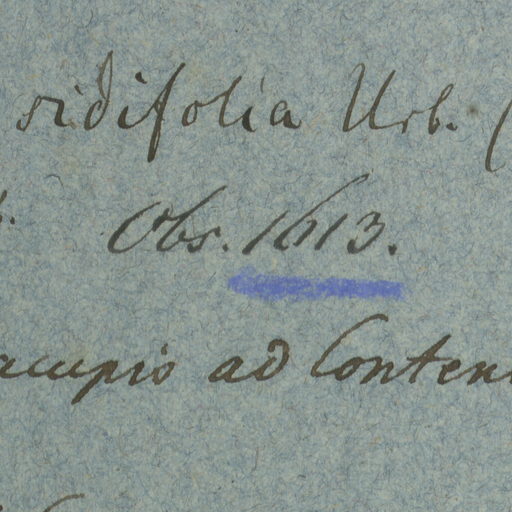 sidifolia Urb. (
Obs. 1613.
acupis ad Conten